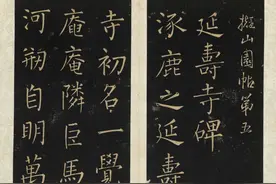 擬山園帖第五
延壽寺碑
涿鹿之延壽
寺初名一覺
庵庵隣臣馬
河刱自明萬